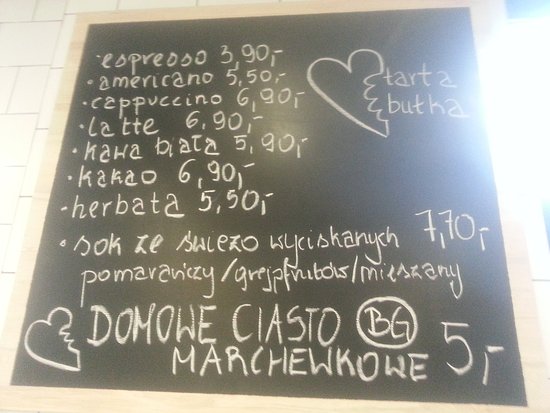 · espresso 3,90,-
· americano 5,50,-
· cappuccino 6,90,-
· latte 6,90,-
· kawa biała 5,90,-
· kakao 6,90,-
· herbata 5,50,-
tarta
bułka
· sok ze świeżo wyciskanych 7,70,-
pomarańczy/grejpfrutów/mieszany
DOMOWE CIASTO BG
MARCHEWKOWE 5,-